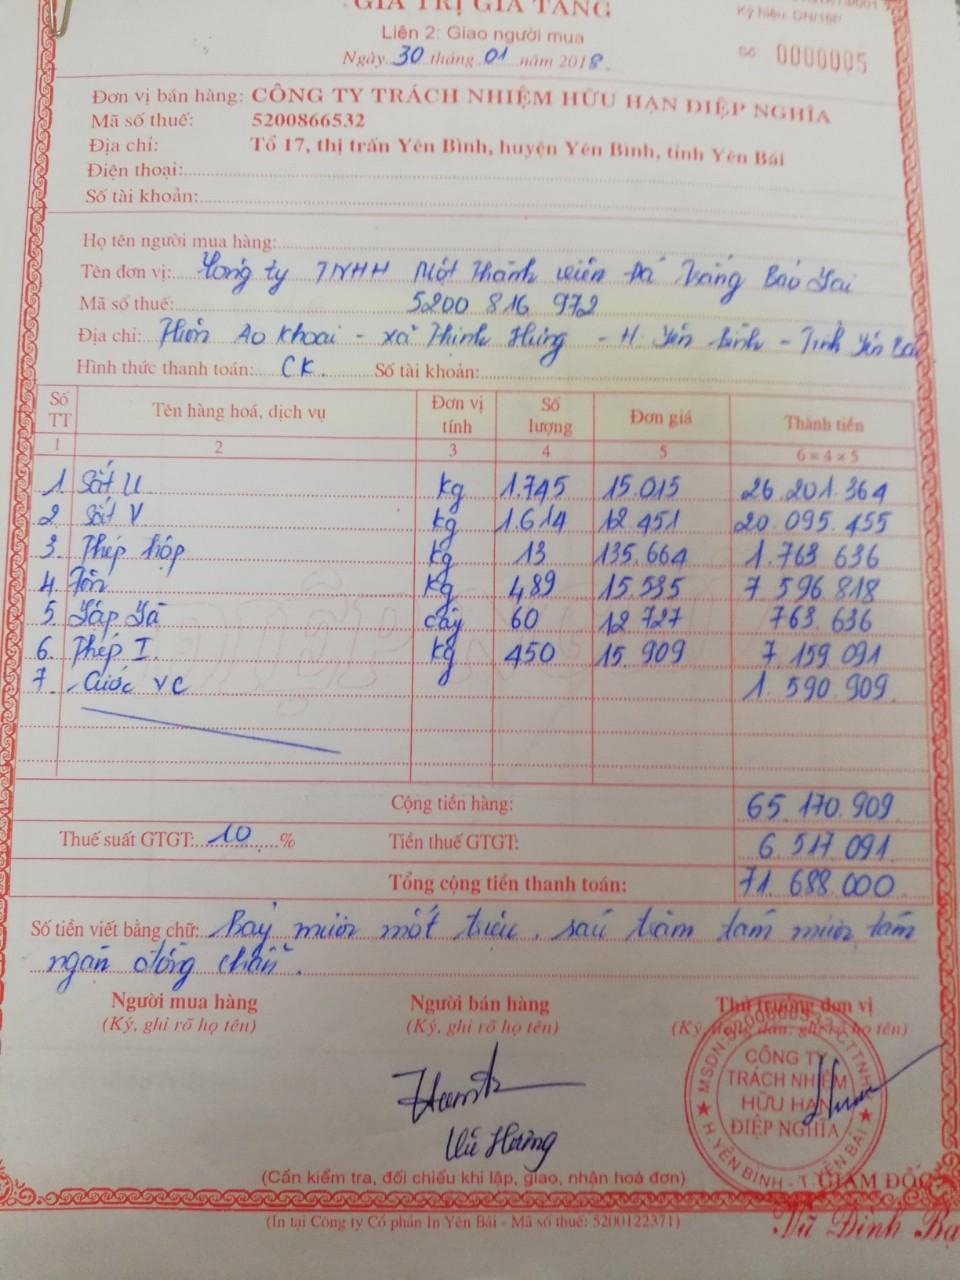 GIÁ TRỊ GIA TĂNG
Ký hiệu: DN/16P
Liên 2: Giao người mua
Ngày 30 tháng 01 năm 2018.
Số 0000005
Đơn vị bán hàng: CÔNG TY TRÁCH NHIỆM HỮU HẠN DIỆP NGHĨA
Mã số thuế: 5200866532
Địa chỉ: Tổ 17, thị trấn Yên Bình, huyện Yên Bình, tỉnh Yên Bái
Điện thoại:
Số tài khoản:
Họ tên người mua hàng:
Tên đơn vị: Công ty TNHH Một Thành viên Đá Trắng Bảo Lai
Mã số thuế: 5200 816 972
Địa chỉ: Thôn Ao Khoai - xã Thịnh Hưng - H. Yên Bình - Tỉnh Yên Bái
Hình thức thanh toán: CK. Số tài khoản:
Số TT Tên hàng hoá, dịch vụ Đơn vị tính Số lượng Đơn giá Thành tiền
1 2 3 4 5 6 = 4 x 5
1. Sắt U kg 1.745 15.015 26.201.364
2. Sắt V kg 1.614 12.451 20.095.455
3. Thép hộp kg 13 135.664 1.763 636
4. Tôn kg 489 15.535 7 596 818
5. cây 60 12 727 763.636
6. Thép I. kg 450 15.909 7 159 091
7. Cước VC 1.590.909
DIỆP NGHĨA
Cộng tiền hàng: 65 170.909
Thuế suất GTGT: 10 % Tiền thuế GTGT: 6 517 091
Tổng cộng tiền thanh toán: 71 688 000
Số tiền viết bằng chữ: Bảy mươi mốt triệu, sáu trăm tám mươi tám
ngàn đồng chẵn.
Người mua hàng Người bán hàng Thủ trưởng đơn vị
(Ký, ghi rõ họ tên) (Ký, ghi rõ họ tên) (Ký, đóng dấu, ghi rõ họ tên)
CÔNG TY
TRÁCH NHIỆM
HỮU HẠN
DIỆP NGHĨA
H.YÊN BÌNH - T.YÊN BÁI
Vũ Hương
(Cần kiểm tra, đối chiếu khi lập, giao, nhận hoá đơn)
GIÁM ĐỐC
(In tại Công ty Cổ phần In Yên Bái - Mã số thuế: 5200122371)
Vũ Đình